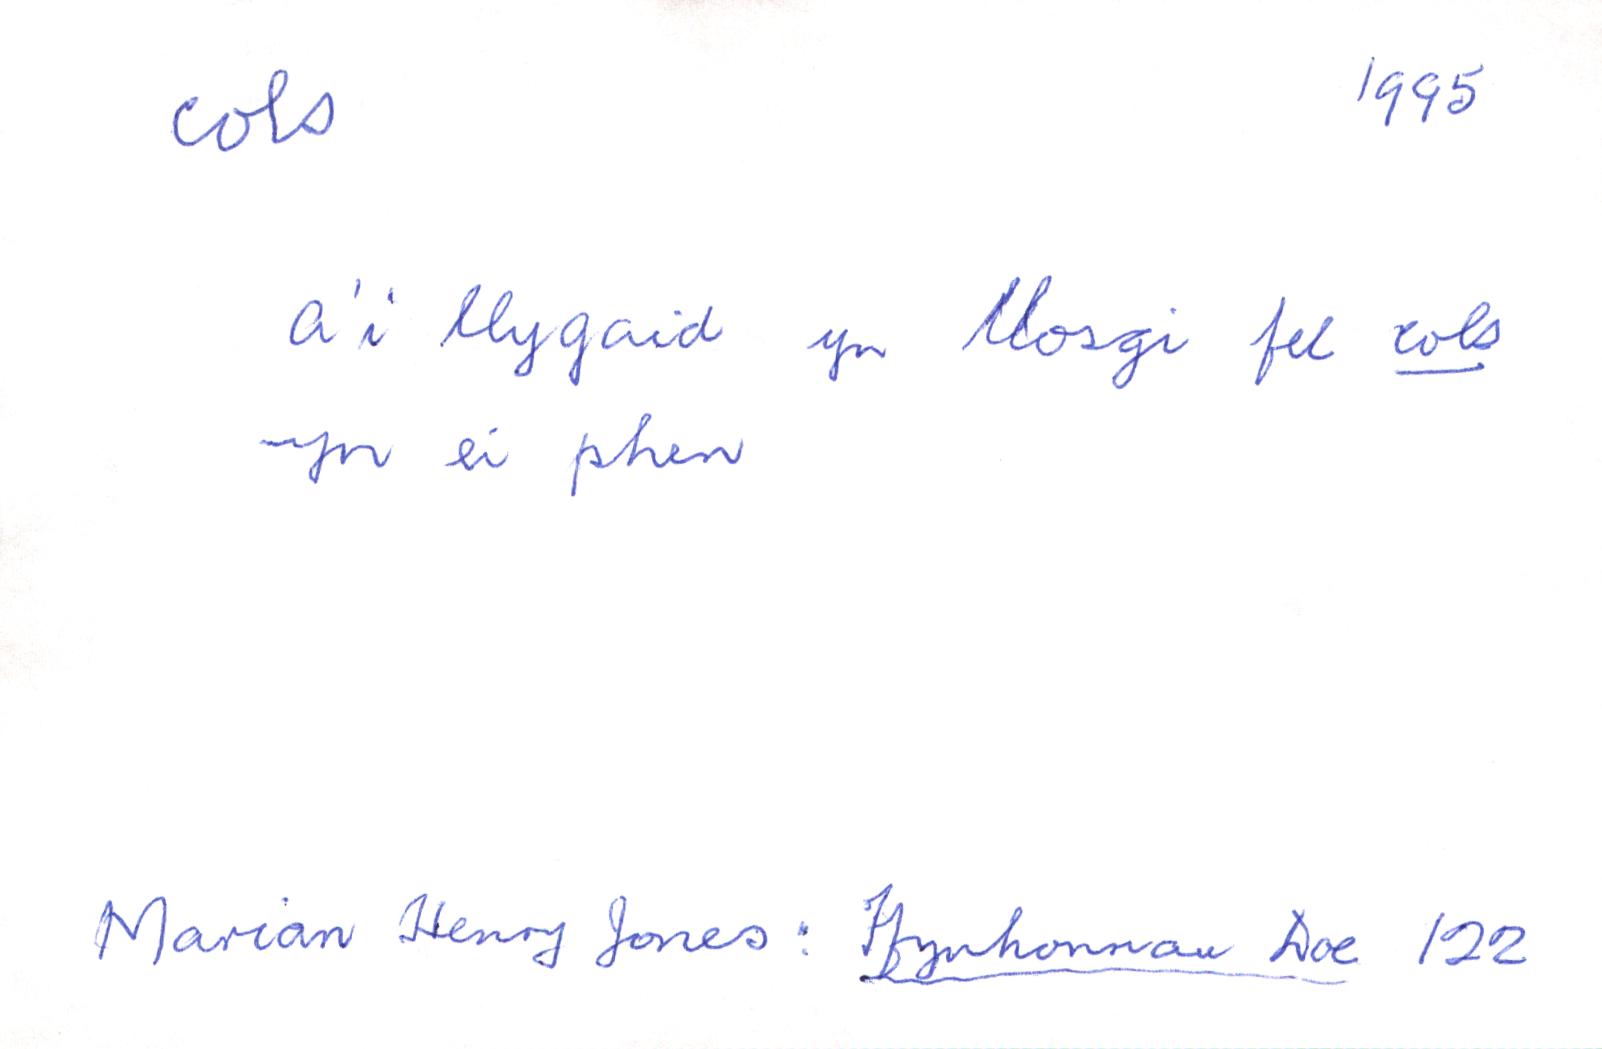 cols 1995
a'i llygaid yn llosgi fel cols
yn ei phen
Marian Henry Jones: Ffynhonnau Doe 122